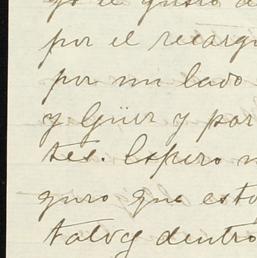 go el gusto d
por el recarg
por un lado
y Güer y por
tes. Espero n
guro que esto
talvez dentro